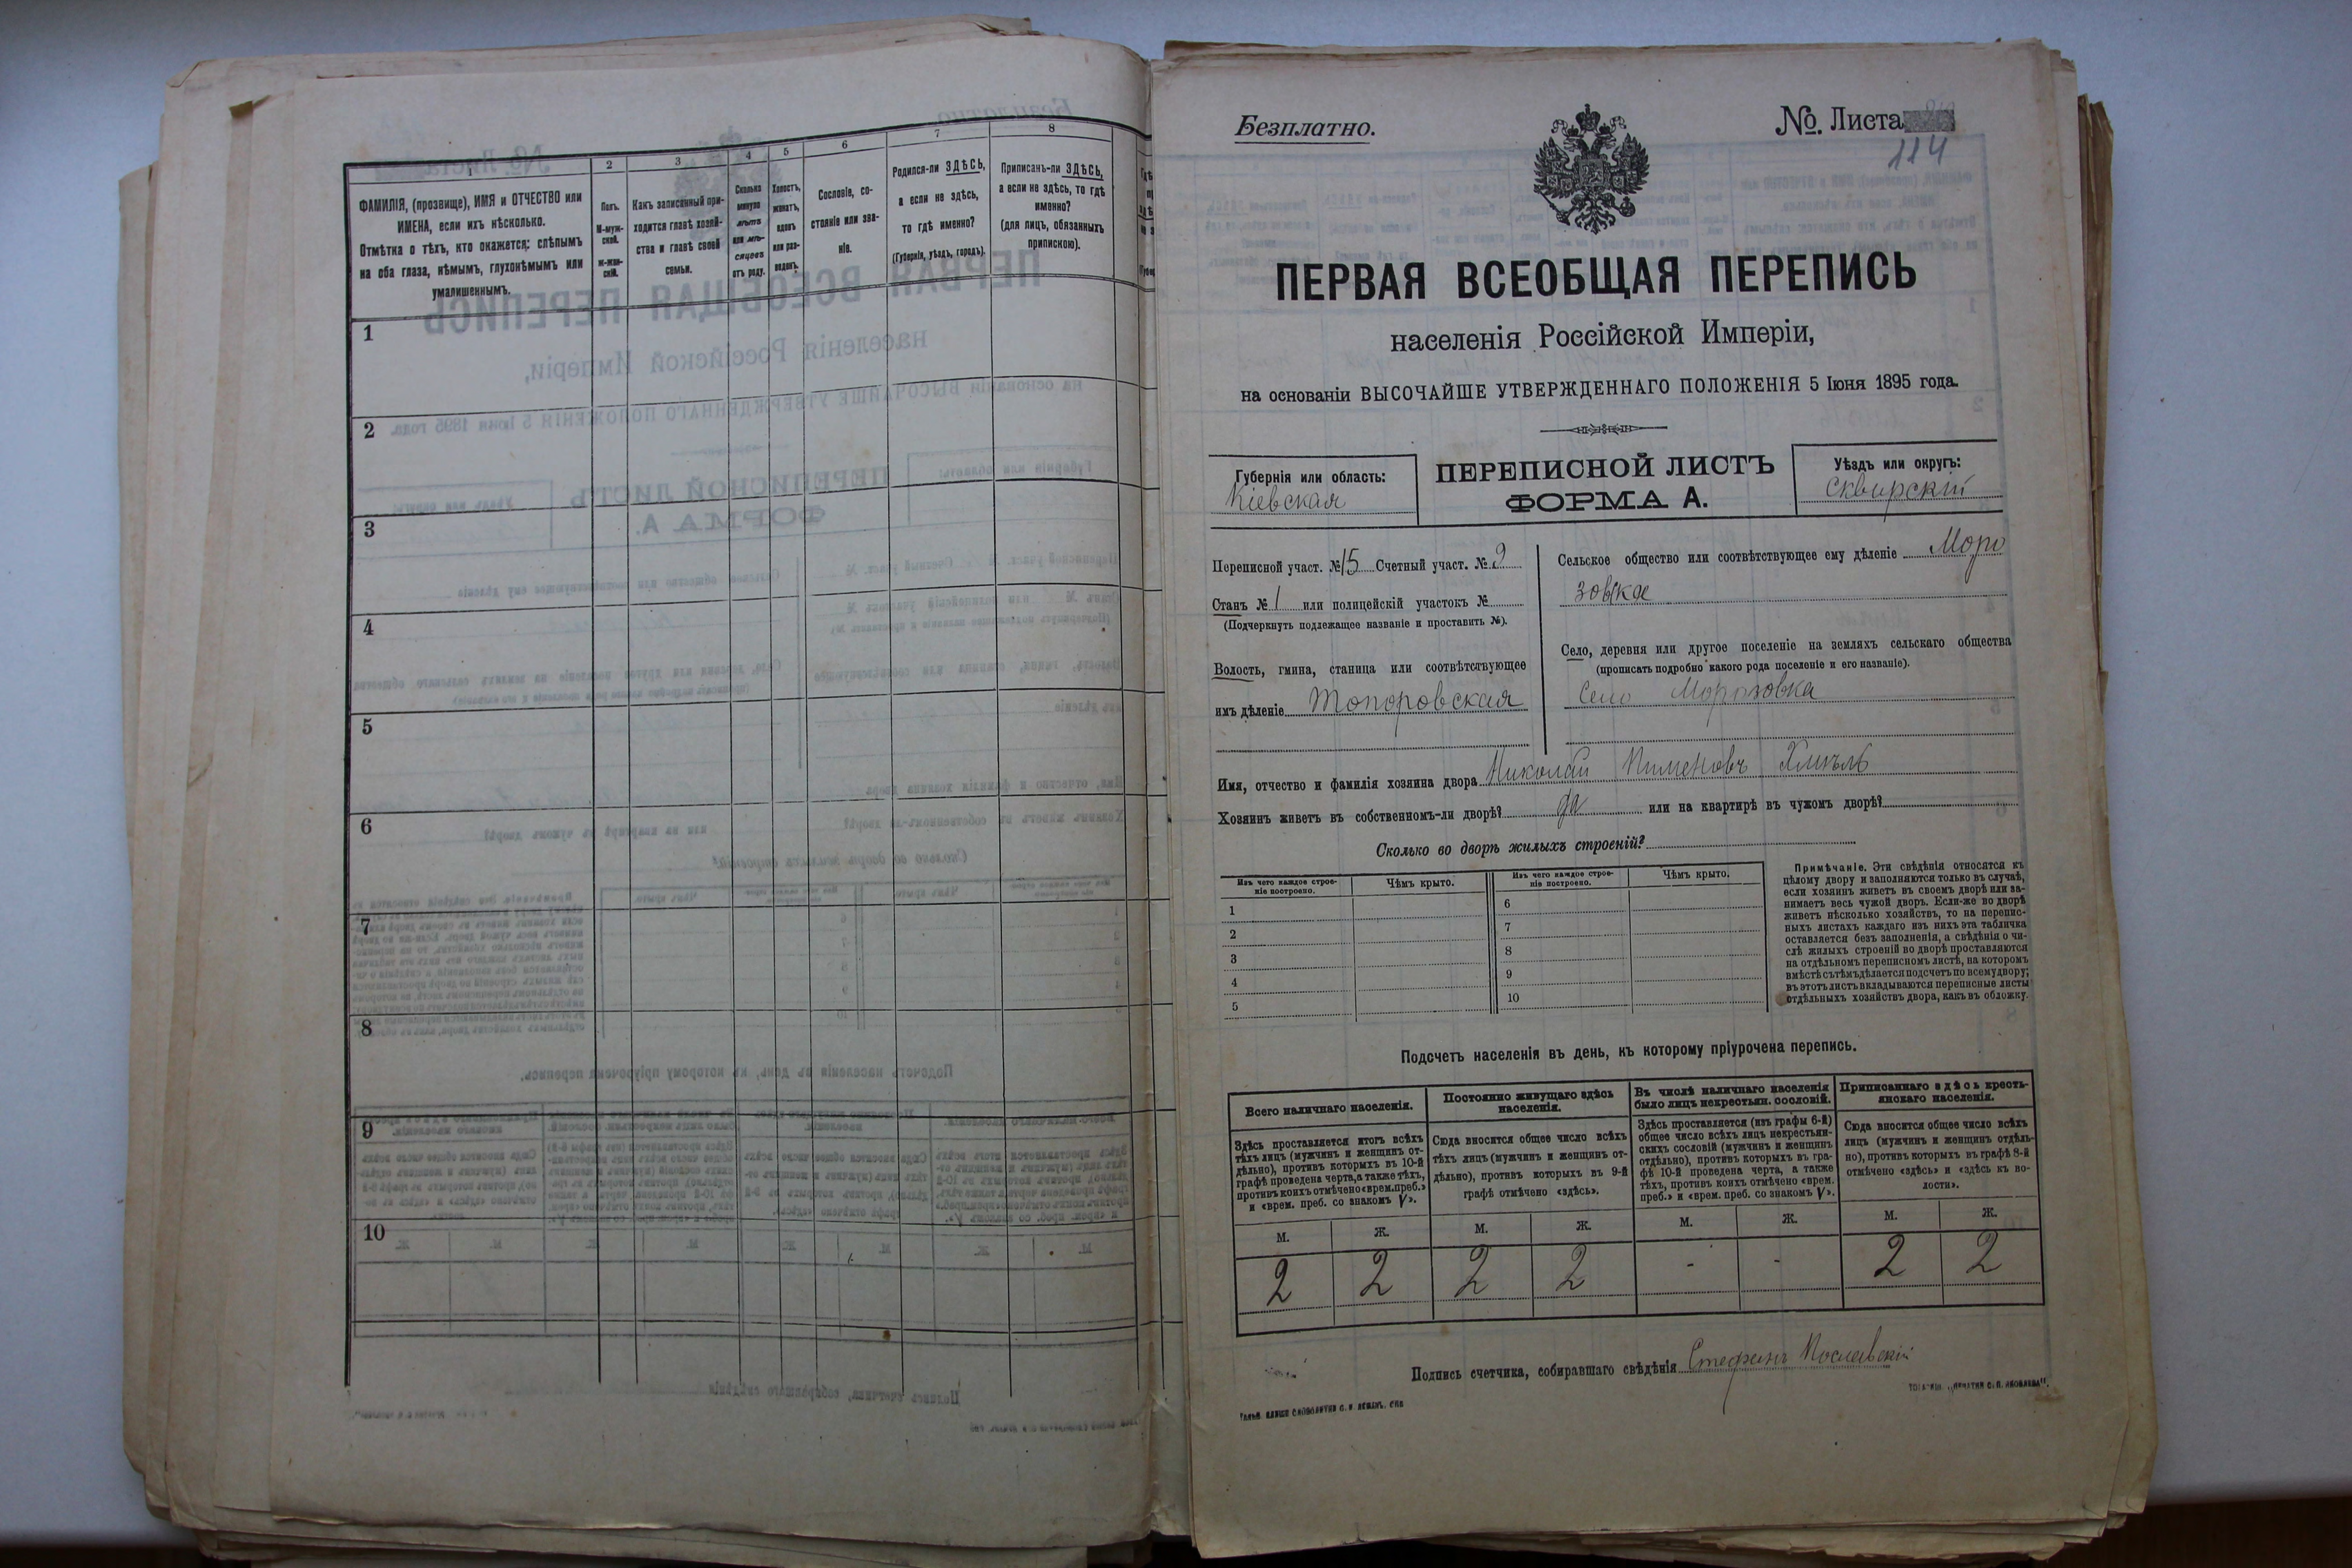 1
ФАМИЛІЯ, (прозвище), ИМЯ и ОТЧЕСТВО или
ИМЕНА, если ихъ нѣсколько.
Отмѣтка о тѣхъ, кто окажется: слѣпымъ
на оба глаза, нѣмымъ, глухонѣмымъ или
умалишеннымъ.
2
Полъ.
М-муж-
ской.
ж-жен-
скій.
3
Какъ записанный при-
ходится главѣ хозяй-
ства и главѣ своей
семьи.
4
Сколько
минуло
лѣтъ
или мѣ-
сяцевъ
отъ роду.
5
Холостъ,
женатъ,
вдовъ
или раз-
веденъ.
6
Сословіе, со-
стояніе или зва-
ніе.
7
Родился-ли ЗДѢСЬ,
а если не здѣсь,
то гдѣ именно?
(Губернія, уѣздъ, городъ).
8
Приписанъ-ли ЗДѢСЬ,
а если не здѣсь, то гдѣ
именно?
(для лицъ, обязанныхъ
припискою).
1
2
3
4
5
6
7
8
9
10
Безплатно.
№. Листа
114
ПЕРВАЯ ВСЕОБЩАЯ ПЕРЕПИСЬ
населенія Россійской Имперіи,
на основаніи ВЫСОЧАЙШЕ УТВЕРЖДЕННАГО ПОЛОЖЕНІЯ 5 Іюня 1895 года.
Губернія или область:
Кіевская
ПЕРЕПИСНОЙ ЛИСТЪ
ФОРМА А.
Уѣздъ или округъ:
Сквирскій
Переписной участ. № 15 Счетный участ. № 2
Станъ № 1 или полицейскій участокъ №
(Подчеркнуть подлежащее названіе и проставить №).
Волость, гмина, станица или соотвѣтствующее
имъ дѣленіе Топоровская
Сельское общество или соотвѣтствующее ему дѣленіе Моро
зовское
Село, деревня или другое поселеніе на земляхъ сельскаго общества
(прописать подробно какого рода поселеніе и его названіе).
Село Морозовка
Имя, отчество и фамилія хозяина двора Николай Пименовъ
Хозяинъ живетъ въ собственномъ-ли дворѣ? да или на квартирѣ въ чужомъ дворѣ?
Сколько во дворѣ жилыхъ строеній?
Изъ чего каждое строе-
ніе построено.
Чѣмъ крыто.
Изъ чего каждое строе-
ніе построено.
Чѣмъ крыто.
1 6
2 7
3 8
4 9
5 10
Примѣчаніе. Эти свѣдѣнія относятся къ
цѣлому двору и заполняются только въ случаѣ,
если хозяинъ живетъ въ своемъ дворѣ или за-
нимаетъ весь чужой дворъ. Если-же во дворѣ
живетъ нѣсколько хозяйствъ, то на перепис-
ныхъ листахъ каждаго изъ нихъ эта табличка
оставляется безъ заполненія, а свѣдѣнія о чи-
слѣ жилыхъ строеній во дворѣ проставляются
на отдѣльномъ переписномъ листѣ, на которомъ
вмѣстѣ съ тѣмъ дѣлается подсчетъ по всему двору;
въ этотъ листъ вкладываются переписные листы
отдѣльныхъ хозяйствъ двора, какъ въ обложку.
Подсчетъ населенія въ день, къ которому пріурочена перепись.
Всего наличнаго населенія.
Здѣсь проставляется итогъ всѣхъ
тѣхъ лицъ (мужчинъ и женщинъ от-
дѣльно), противъ которыхъ въ 10-й
графѣ проведена черта, а также тѣхъ,
противъ коихъ отмѣчено «врем. преб.»
и «врем. преб. со знакомъ V».
Постоянно живущаго здѣсь
населенія.
Сюда вносится общее число всѣхъ
тѣхъ лицъ (мужчинъ и женщинъ от-
дѣльно), противъ которыхъ въ 9-й
графѣ отмѣчено «здѣсь».
Въ числѣ наличнаго населенія
было лицъ некрестьян. сословій.
Здѣсь проставляется (изъ графы 6-й)
общее число всѣхъ лицъ некрестьян-
скихъ сословій (мужчинъ и женщинъ
отдѣльно), противъ которыхъ въ гра-
фѣ 10-й проведена черта, а также
тѣхъ, противъ коихъ отмѣчено «врем.
преб.» и «врем. преб. со знакомъ V».
Приписаннаго здѣсь кресть-
янскаго населенія.
Сюда вносится общее число всѣхъ
лицъ (мужчинъ и женщинъ отдѣль-
но), противъ которыхъ въ графѣ 8-й
отмѣчено «здѣсь» и «здѣсь къ во-
лости».
М. Ж. М. Ж. М. Ж. М. Ж.
2 2 2 2 - - 2 2
Подпись счетчика, собиравшаго свѣдѣнія Стефанъ Пославскій